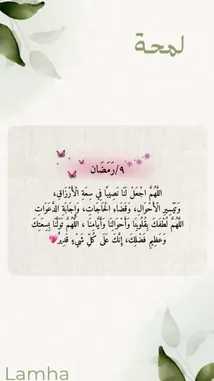 لمحة
٩/رَمَضَان
اللَّهُمَّ اجْعَلْ لَنَا نَصِيبًا فِي سِعَةِ الْأَرْزَاقِ،
وَتَيْسِيرِ الْأَحْوَالِ، وَقَضَاءِ الْحَاجَاتِ، وَإِجَابَةِ الدَّعَوَاتِ
اللَّهُمَّ لُطْفَاتٌ بِقُلُوبِنَا وَأَحْوَالِنَا وَأَيَّامِنَا، اللَّهُمَّ تَوَلَّنَا بِسِعَتِكَ
وَعَظِيمِ فَضْلِكَ، إِنَّكَ عَلَى كُلِّ شَيْءٍ قَدِيرٌ
Lamha